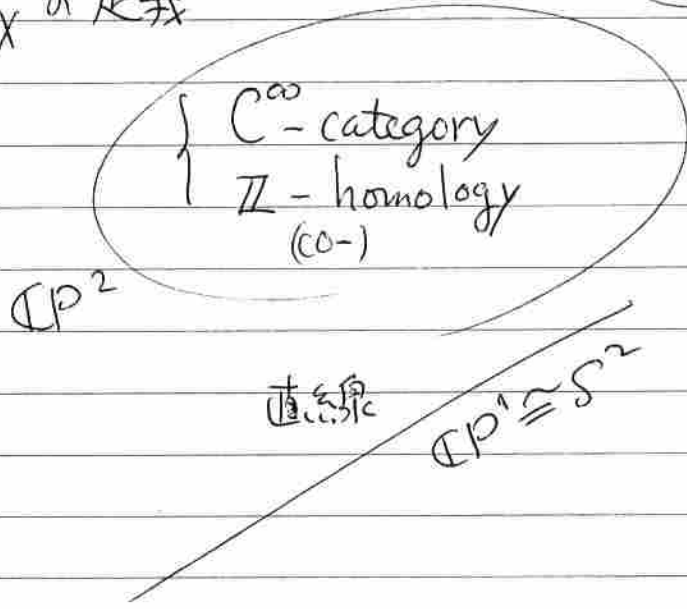 X の定義
C^∞ - category
ℤ - homology
(co-)
ℂP^2
直線
ℂP^1 ≅ S^2